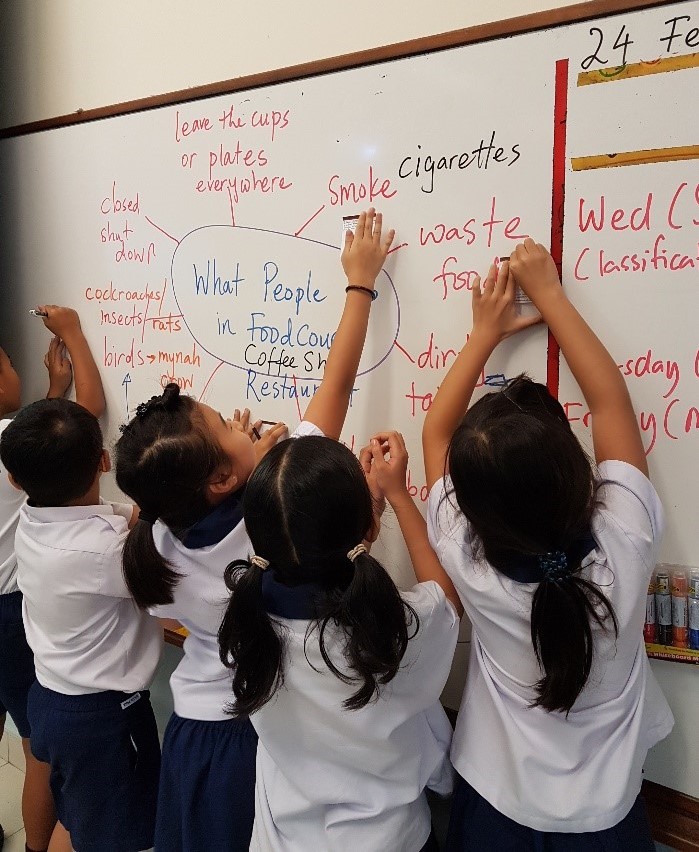 24 Fe
leave the cups
or plates
everywhere
smoke
cigarettes
closed
shut
down
waste
food
What People
in Food Cou
Coffee Sh
Restaurant
cockroaches/
insects/
rats
birds → mynah
Wed (
Classificat
sday (
Fr y (m